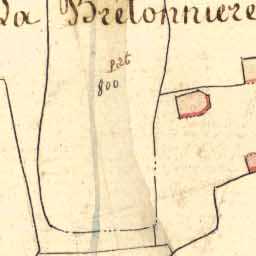 La Bretonniere
pat
800